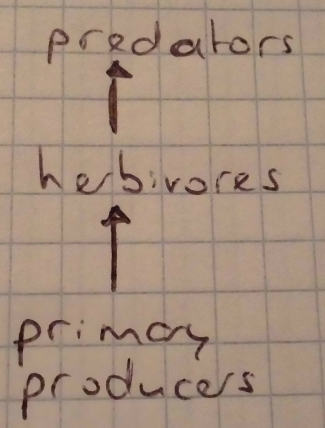 predators
herbivores
primary
producers